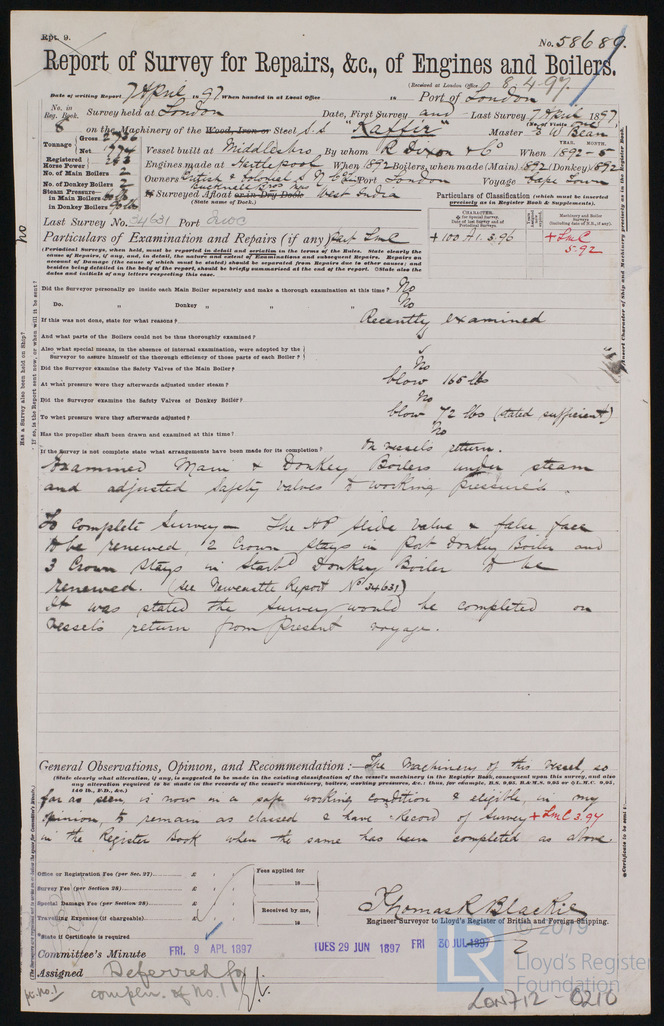 Rpt. 9.
No. 58689.
Report of Survey for Repairs, &c., of Engines and Boilers.
(Received at London Office 8.4.97.)
Date of writing Report 7 April 1897 When handed in at Local Office 18 Port of London
No. in Reg. Book. Survey held at London Date, First Survey and Last Survey 7 April 1897
8 on the Machinery of the Wood, Iron or Steel S.S. "Kaffir" Master E W Bean
Tonnage Gross
Net 1774
Vessel built at Middlesbro By whom R Dixon & Co When 1892-5
Registered Horse Power 263
Engines made at Hartlepool When 1892 Boilers, when made (Main) 1892 (Donkey) 1892
No. of Main Boilers 2
Owners British & Colonial S N Co Ld Port London Voyage Cape Town
No. of Donkey Boilers 2
Steam Pressure in Main Boilers
in Donkey Boilers
If Surveyed Afloat or in Dry Dock West India
(State name of Dock.)
Particulars of Classification (which must be inserted precisely as in Register Book & Supplements).
Last Survey No. 34631 Port
CHARACTER.
Machinery and Boiler Surveys
+ 100 A1. 3.96
+ LMC 5.92
Particulars of Examination and Repairs (if any) Part LMC
(Periodical Surveys, when held, must be reported in detail and seriatim in the terms of the Rules. State clearly the cause of Repairs, if any, and, in detail, the nature and extent of Examinations and subsequent Repairs. Repairs on account of Damage (the cause of which must be stated) should be separated from Repairs due to other causes; and besides being detailed in the body of the report, should be briefly summarised at the end of the report. State also the dates and initials of any letters respecting this case.
Did the Surveyor personally go inside each Main Boiler separately and make a thorough examination at this time? No
Do. " Donkey " " " " No
If this was not done, state for what reasons? Recently examined
And what parts of the Boilers could not be thus thoroughly examined?
Also what special means, in the absence of internal examination, were adopted by the Surveyor to assure himself of the thorough efficiency of those parts of each Boiler?
Did the Surveyor examine the Safety Valves of the Main Boiler? No
At what pressure were they afterwards adjusted under steam? blow 165 lbs
Did the Surveyor examine the Safety Valves of Donkey Boiler? No
To what pressure were they afterwards adjusted? blow 72 lbs (stated sufficient)
Has the propeller shaft been drawn and examined at this time? No
If the Survey is not complete state what arrangements have been made for its completion? On vessels return.
Examined Main & Donkey Boilers under steam
and adjusted safety valves to working pressures.
To complete Survey - The HP slide valve & false face
to be renewed, 2 Crown stays in Port Donkey Boiler and
3 Crown stays in Starbd Donkey Boiler to be
renewed. (See Newcastle Report No 34631)
It was stated the survey would be completed on
vessels return from present voyage.
General Observations, Opinion, and Recommendation :- The Machinery of this vessel, so
(State clearly what alteration, if any, is suggested to be made in the existing classification of the vessel's machinery in the Register Book, consequent upon this survey, and also any alteration required to be made in the records of the vessel's machinery, boilers, working pressure, &c.: thus, for example, B.S. 9,95, B.&M.S. 9,95 or L.M.C. 9,95, 140 lb., F.D., &c.)
far as seen, is now in a safe working condition & eligible, in my
opinion, to remain as classed & have record of Survey + LMC 3.97
in the Register Book when the same has been completed as above.
Office or Registration Fee (per Sec. 27)... £ : :
Fees applied for
Survey Fee (per Section 28)... £ : :
18
Special Damage Fee (per Section 28)... £ : :
Received by me,
Travelling Expenses (if chargeable)... £ : :
18
Thomas R Blackie
Engineer Surveyor to Lloyd's Register of British and Foreign Shipping.
State if Certificate is required
Committee's Minute FRI. 9 APL 1897 TUES 29 JUN 1897 FRI 30 JUL 1897
Assigned Deferred for
complen. of No. 1
© 2019
LR
Lloyd's Register
Foundation
LON712-0210